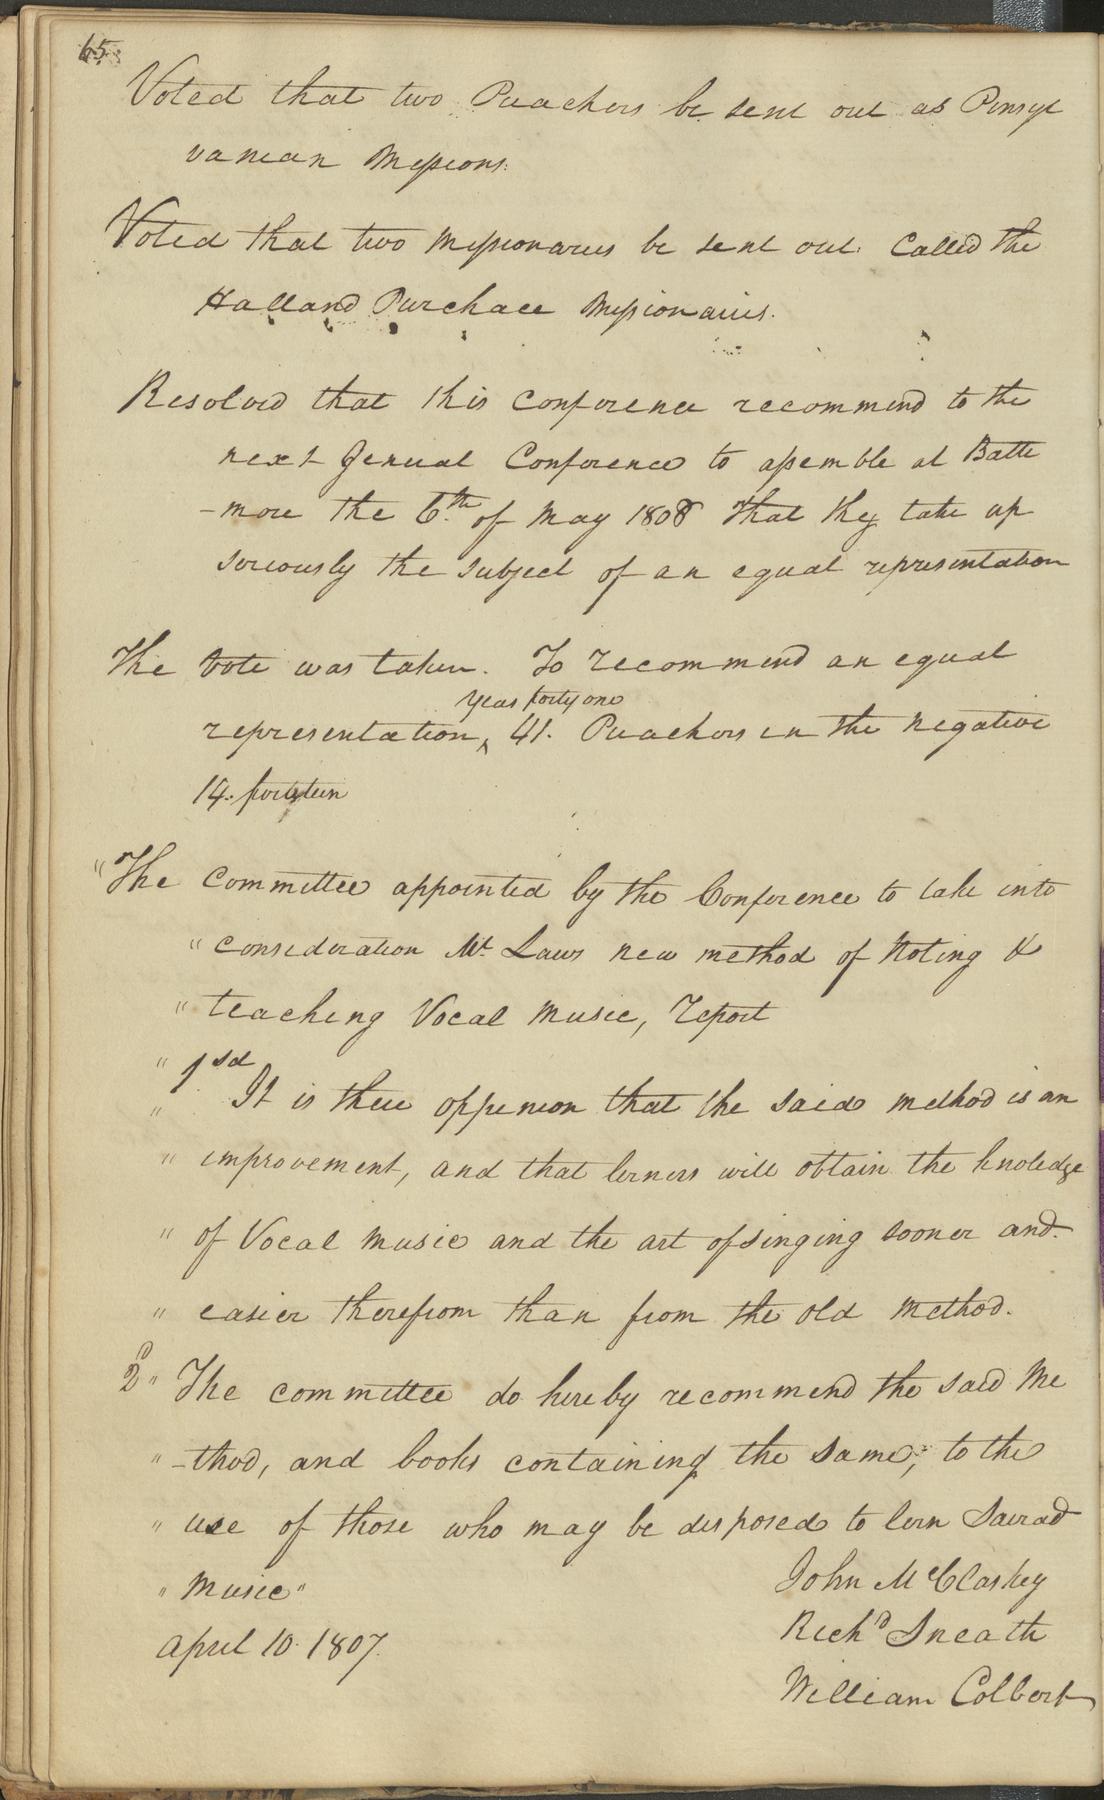 65
Voted that two Preachers be sent out as Pensyl
vanian Missions.
Voted that two Missionaries be sent out. Called the
Halland Purchace Missionaries.
Resolved that this Conference recommend to the
next General Conference to assemble at Balte
-more the 6th of May 1808 That they take up
seriously the subject of an equal representation
The Vote was taken. To recommend an equal
Yeas forty one
representation, ‸ 41. Preachers in the Negative
14. fourteen
"The Committee appointed by the Conference to take into
" consideration Mr. Laws new method of Noting &
" teaching Vocal Music, Report
" 1sd
" It is there oppenion that the said method is an
" improvement, and that lerners will obtain the knoledge
" of Vocal Music and the art of singing sooner and
" easier therefrom than from the old Method.
2d " The committee do hereby recommend the said Me
" -thod, and books containing the same, to the
" use of those who may be disposed to lern Sacrad
" Music"
John McClaskey
April 10. 1807.
Richd Sneath
William Colbert